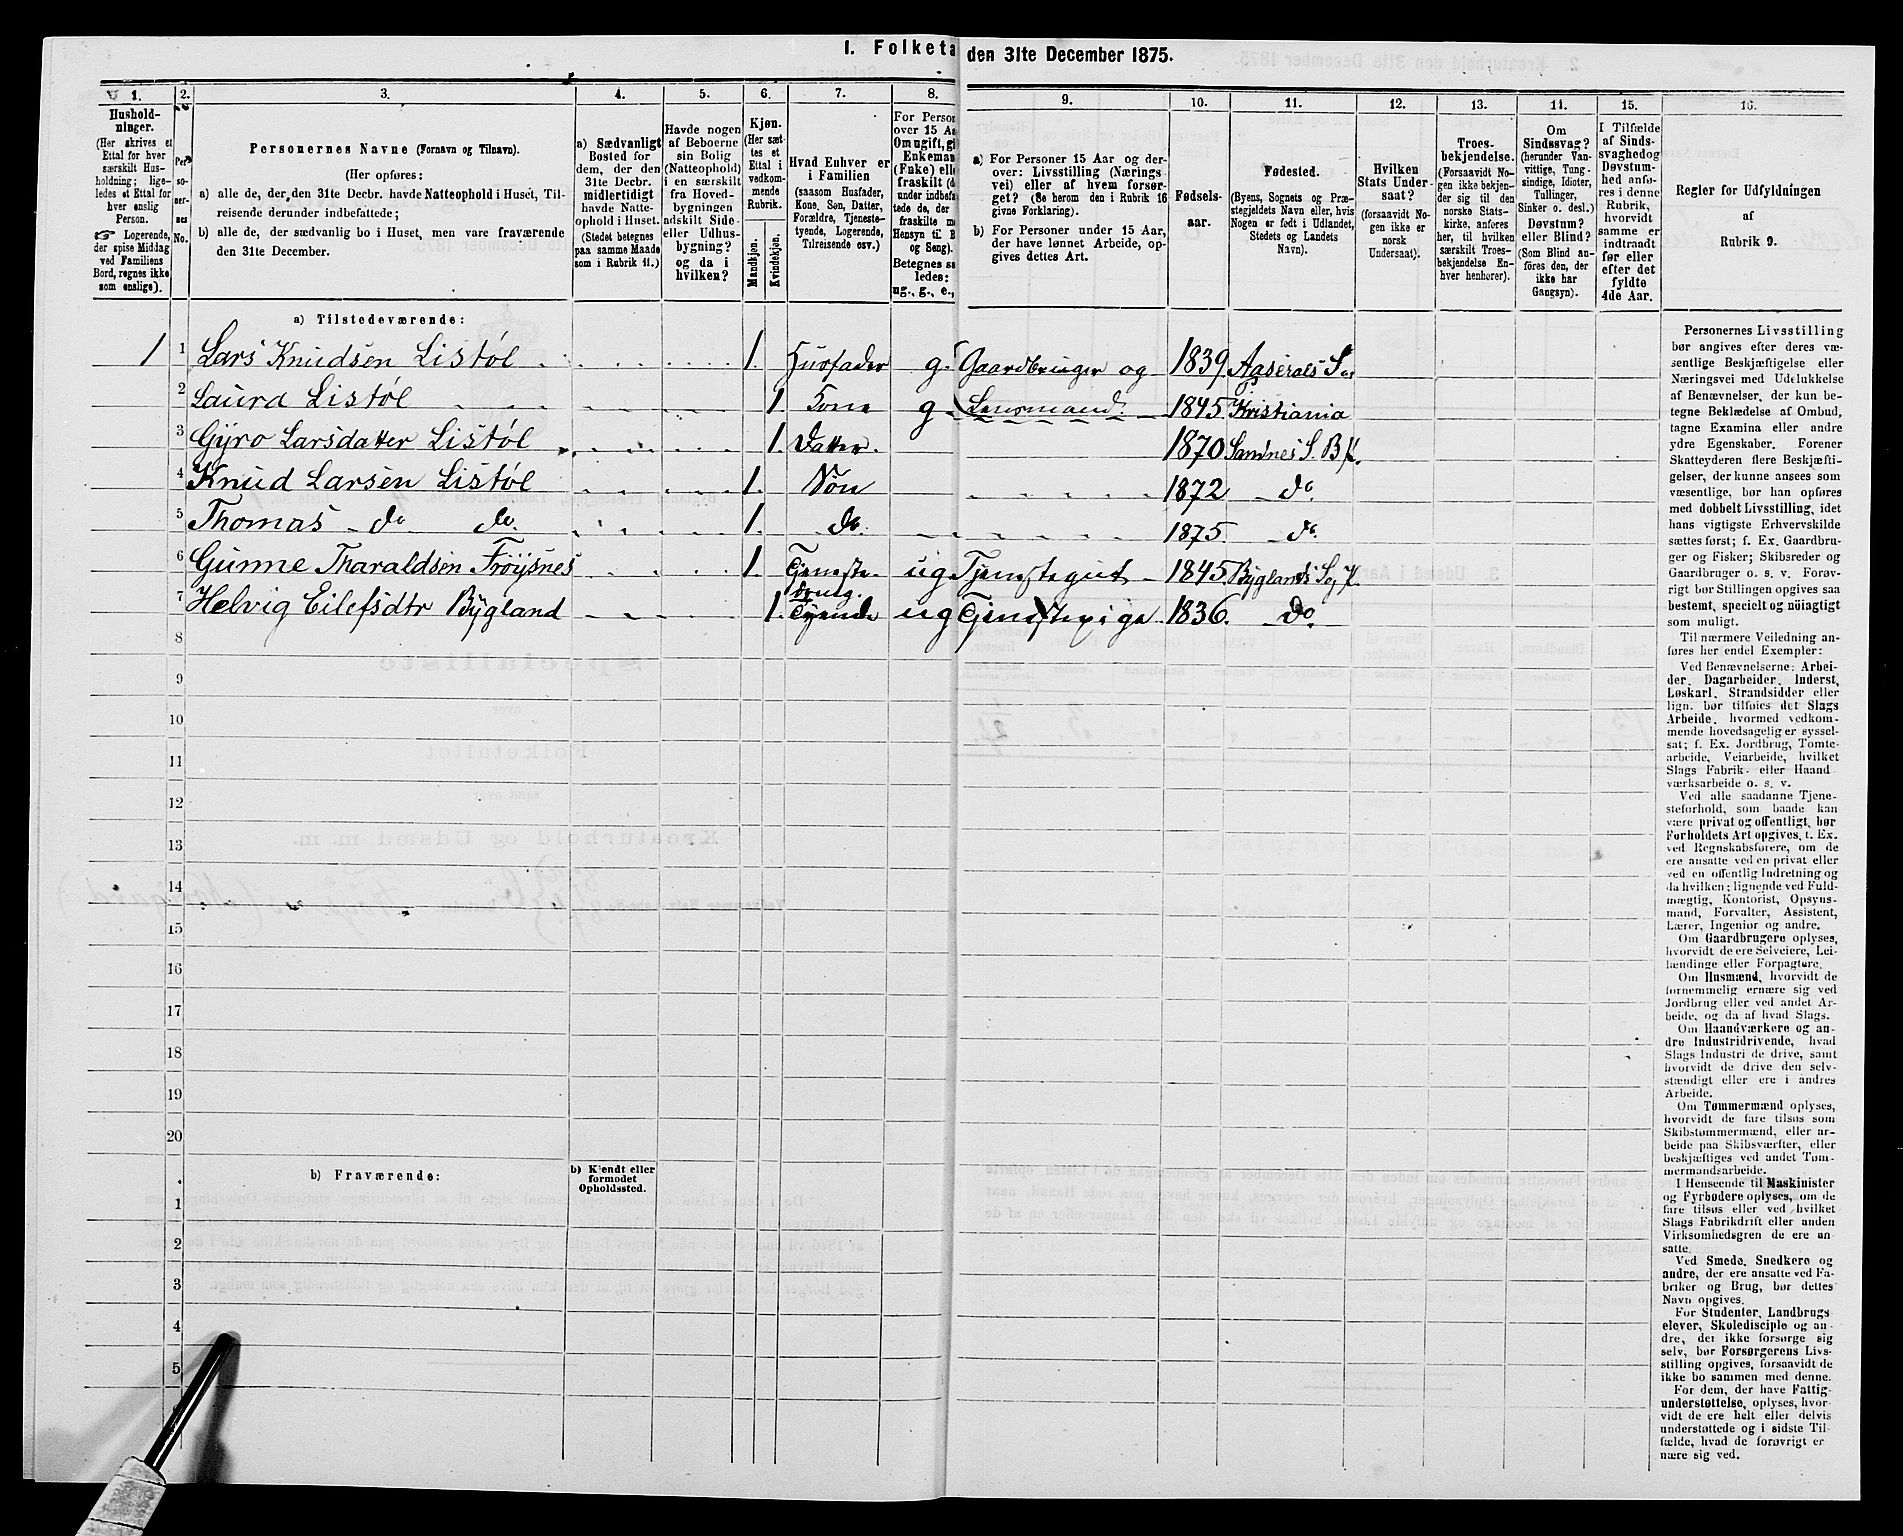 I. Folketa den 31te December 1875.
1. 2. 3. 4. 5. 6. 7. 8. 9. 10. 11. 12. 13. 14. 15. 16.
Hushold-
ninger.
(Her skrives et
Ettal for hver
særskilt Hus-
holdning; lige-
ledes et Ettal for
hver enslig
Person.
☞ Logerende,
der spise Middag
ved Familiens
Bord, regnes ikke
som enslige).
Per-
so-
ner-
nes
No.
Personernes Navne (Fornavn og Tilnavn).
(Her opføres:
a) alle de, der den 31te Decbr. havde Natteophold i Huset, Til-
reisende derunder indbefattede;
b) alle de, der sædvanlig bo i Huset, men vare fraværende
den 31te December.
a) Sædvanligt
Bosted for
dem, der den
31te Decbr.
midlertidigt
havde Natte-
ophold i Huset.
(Stedet betegnes
paa samme Maade
som i Rubrik 11.)
Havde nogen
af Beboerne
sin Bolig
(Natteophold)
i en særskilt
fra Hoved-
bygningen
adskilt Side-
eller Udhus-
bygning?
og da i
hvilken?
Kjøn.
(Her sæt-
tes et
Ettal i
vedkom-
mende
Rubrik.
Mandkjøn.
Kvindekjøn.
Hvad Enhver er
i Familien
(saasom Husfader,
Kone, Søn, Datter,
Forældre, Tjeneste-
tyende, Logerende,
Tilreisende osv.)
For Person
over 15 Aa
Om ugift, gi
Enkeman
(Enke) elle
fraskilt (d
under indbefa
tede de, der
fraskilte m
Hensyn til B
og Seng).
Betegnes sa
ledes:
ug., g., e.,
a) For Personer 15 Aar og der-
over: Livsstilling (Nærings-
vei) eller af hvem forsør-
get? (Se herom den i Rubrik 16
givne Forklaring).
b) For Personer under 15 Aar,
der have lønnet Arbeide, op-
gives dettes Art.
Fødsels-
aar.
Fødested.
(Byens, Sognets og Præ-
stegjeldets Navn eller, hvis
Nogen er født i Udlandet,
Stedets og Landets
Navn).
Hvilken
Stats Under-
saat?
(forsaavidt No-
gen ikke er
norsk
Undersaat).
Troes-
bekjendelse.
(Forsaavidt No-
gen ikke bekjen-
der sig til den
norske Stats-
kirke, anføres
her, til hvilken
særskilt Troes-
bekjendelse En-
hver henhører).
Om
Sindssvag?
(herunder Van-
vittige, Tung-
sindige, Idioter,
Tullinger,
Sinker o. desl.)
Døvstum?
eller Blind?
(Som Blind an-
føres den, der
ikke har
Gangsyn).
I Tilfælde
af Sinds-
svaghed og
Døvstum-
hed anfø-
res i denne
Rubrik,
hvorvidt
samme er
indtraadt
før eller
efter det
fyldte
4de Aar.
Regler for Udfyldningen
af
Rubrik 9.
a) Tilstedeværende:
1 1 Lars Knudsen Listøl 1. Husfader g. Gaardbruger og 1839 Aaserals S.
2 Laura Listøl 1. Kone g Lensmand. 1845 Kristiania
3 Gyro Larsdatter Listøl 1. Datter. 1870 Sandnes S. B.
4 Knud Larsen Listøl 1. Søn 1872 do.
5 Thomas do do. 1. do. 1875. do.
6 Gunne Tharaldsen Frøysnes 1. Tjeneste- ug. Tjenestegut 1845 Byglands S.
7 Helvig Eilefsdtr Bygland 1. Tyende ug Tjenestepige. 1836. do.
8
9
10
11
12
13
14
15
16
17
18
19
20
b) Fraværende:
b) Kjendt eller
formodet
Opholdssted.
1
2
3
4
5
Personernes Livsstilling
bør angives efter deres væ-
sentlige Beskjæftigelse eller
Næringsvei med Udelukkelse
af Benævnelser, der kun be-
tegne Beklædelse af Ombud,
tagne Examina eller andre
ydre Egenskaber. Forener
Skatteyderen flere Beskjæfti-
gelser, der kunne ansees som
væsentlige, bør han opføres
med dobbelt Livsstilling, idet
hans vigtigste Erhvervskilde
sættes først; f. Ex. Gaardbru-
ger og Fisker; Skibsreder og
Gaardbruger o. s. v. Forøv-
rigt bør Stillingen opgives saa
bestemt, specielt og nøiagtig
som muligt.
Til nærmere Veiledning an-
føres her endel Exempler:
Ved Benævnelserne: Arbei-
der, Dagarbeider, Inderst,
Løskarl, Strandsidder eller
lign. bør tilføies det Slags
Arbeide, hvormed vedkom-
mende hovedsagelig er syssel-
sat; f. Ex. Jordbrug, Tomte-
arbeide, Veiarbeide, hvilket
Slags Fabrik- eller Haand
værksarbeide o. s. v.
Ved alle saadanne Tjene-
steforhold, som baade kan
være privat og offentligt, bør
Forholdets Art opgives, t. Ex.
ved Regnskabsførere, om de
ere ansatte ved en privat eller
ved en offentlig Indretning og
da hvilken; lignende ved Fuld-
mægtig, Kontorist, Opsyns-
mand, Forvalter, Assistent,
Lærer, Ingeniør og andre.
Om Gaardbrugere oplyses,
hvorvidt de ere Selveiere, Lei-
lændinge eller Forpagtere.
Om Husmænd, hvorvidt de
fornemmelig ernære sig ved
Jordbrug eller ved andet Ar-
beide, og da af hvad Slags.
Om Haandværkere og an-
dre Industridrivende, hvad
Slags Industri de drive, samt
hvorvidt de drive den selv-
stændigt eller ere i andres
Arbeide.
Om Tømmermænd oplyses,
hvorvidt de fare tilsøs som
Skibstømmermænd, eller ar-
beide paa Skibsværfter, eller
beskjæftiges ved andet Tøm-
mermandsarbeide.
I Henseende til Maskinister
og Fyrbødere oplyses, om de
fare tilsøs eller ved hvilket
Slags Fabrikdrift eller anden
Virksomhedsgren de ere an-
satte.
Ved Smede, Snedkere og
andre, der ere ansatte ved Fa-
briker og Brug, bør dettes
Navn opgives.
For Studenter, Landbrugs-
elever, Skoledisciple og an-
dre, der ikke forsørge sig
selv, bør Forsørgerens Livs-
stilling opgives, forsaavidt de
ikke bo sammen med denne.
For dem, der have Fattig-
understøttelse, oplyses, hvor-
vidt de ere helt eller delvis
understøttede og i sidste Til-
fælde, hvad de forøvrigt er-
nære sig ved.